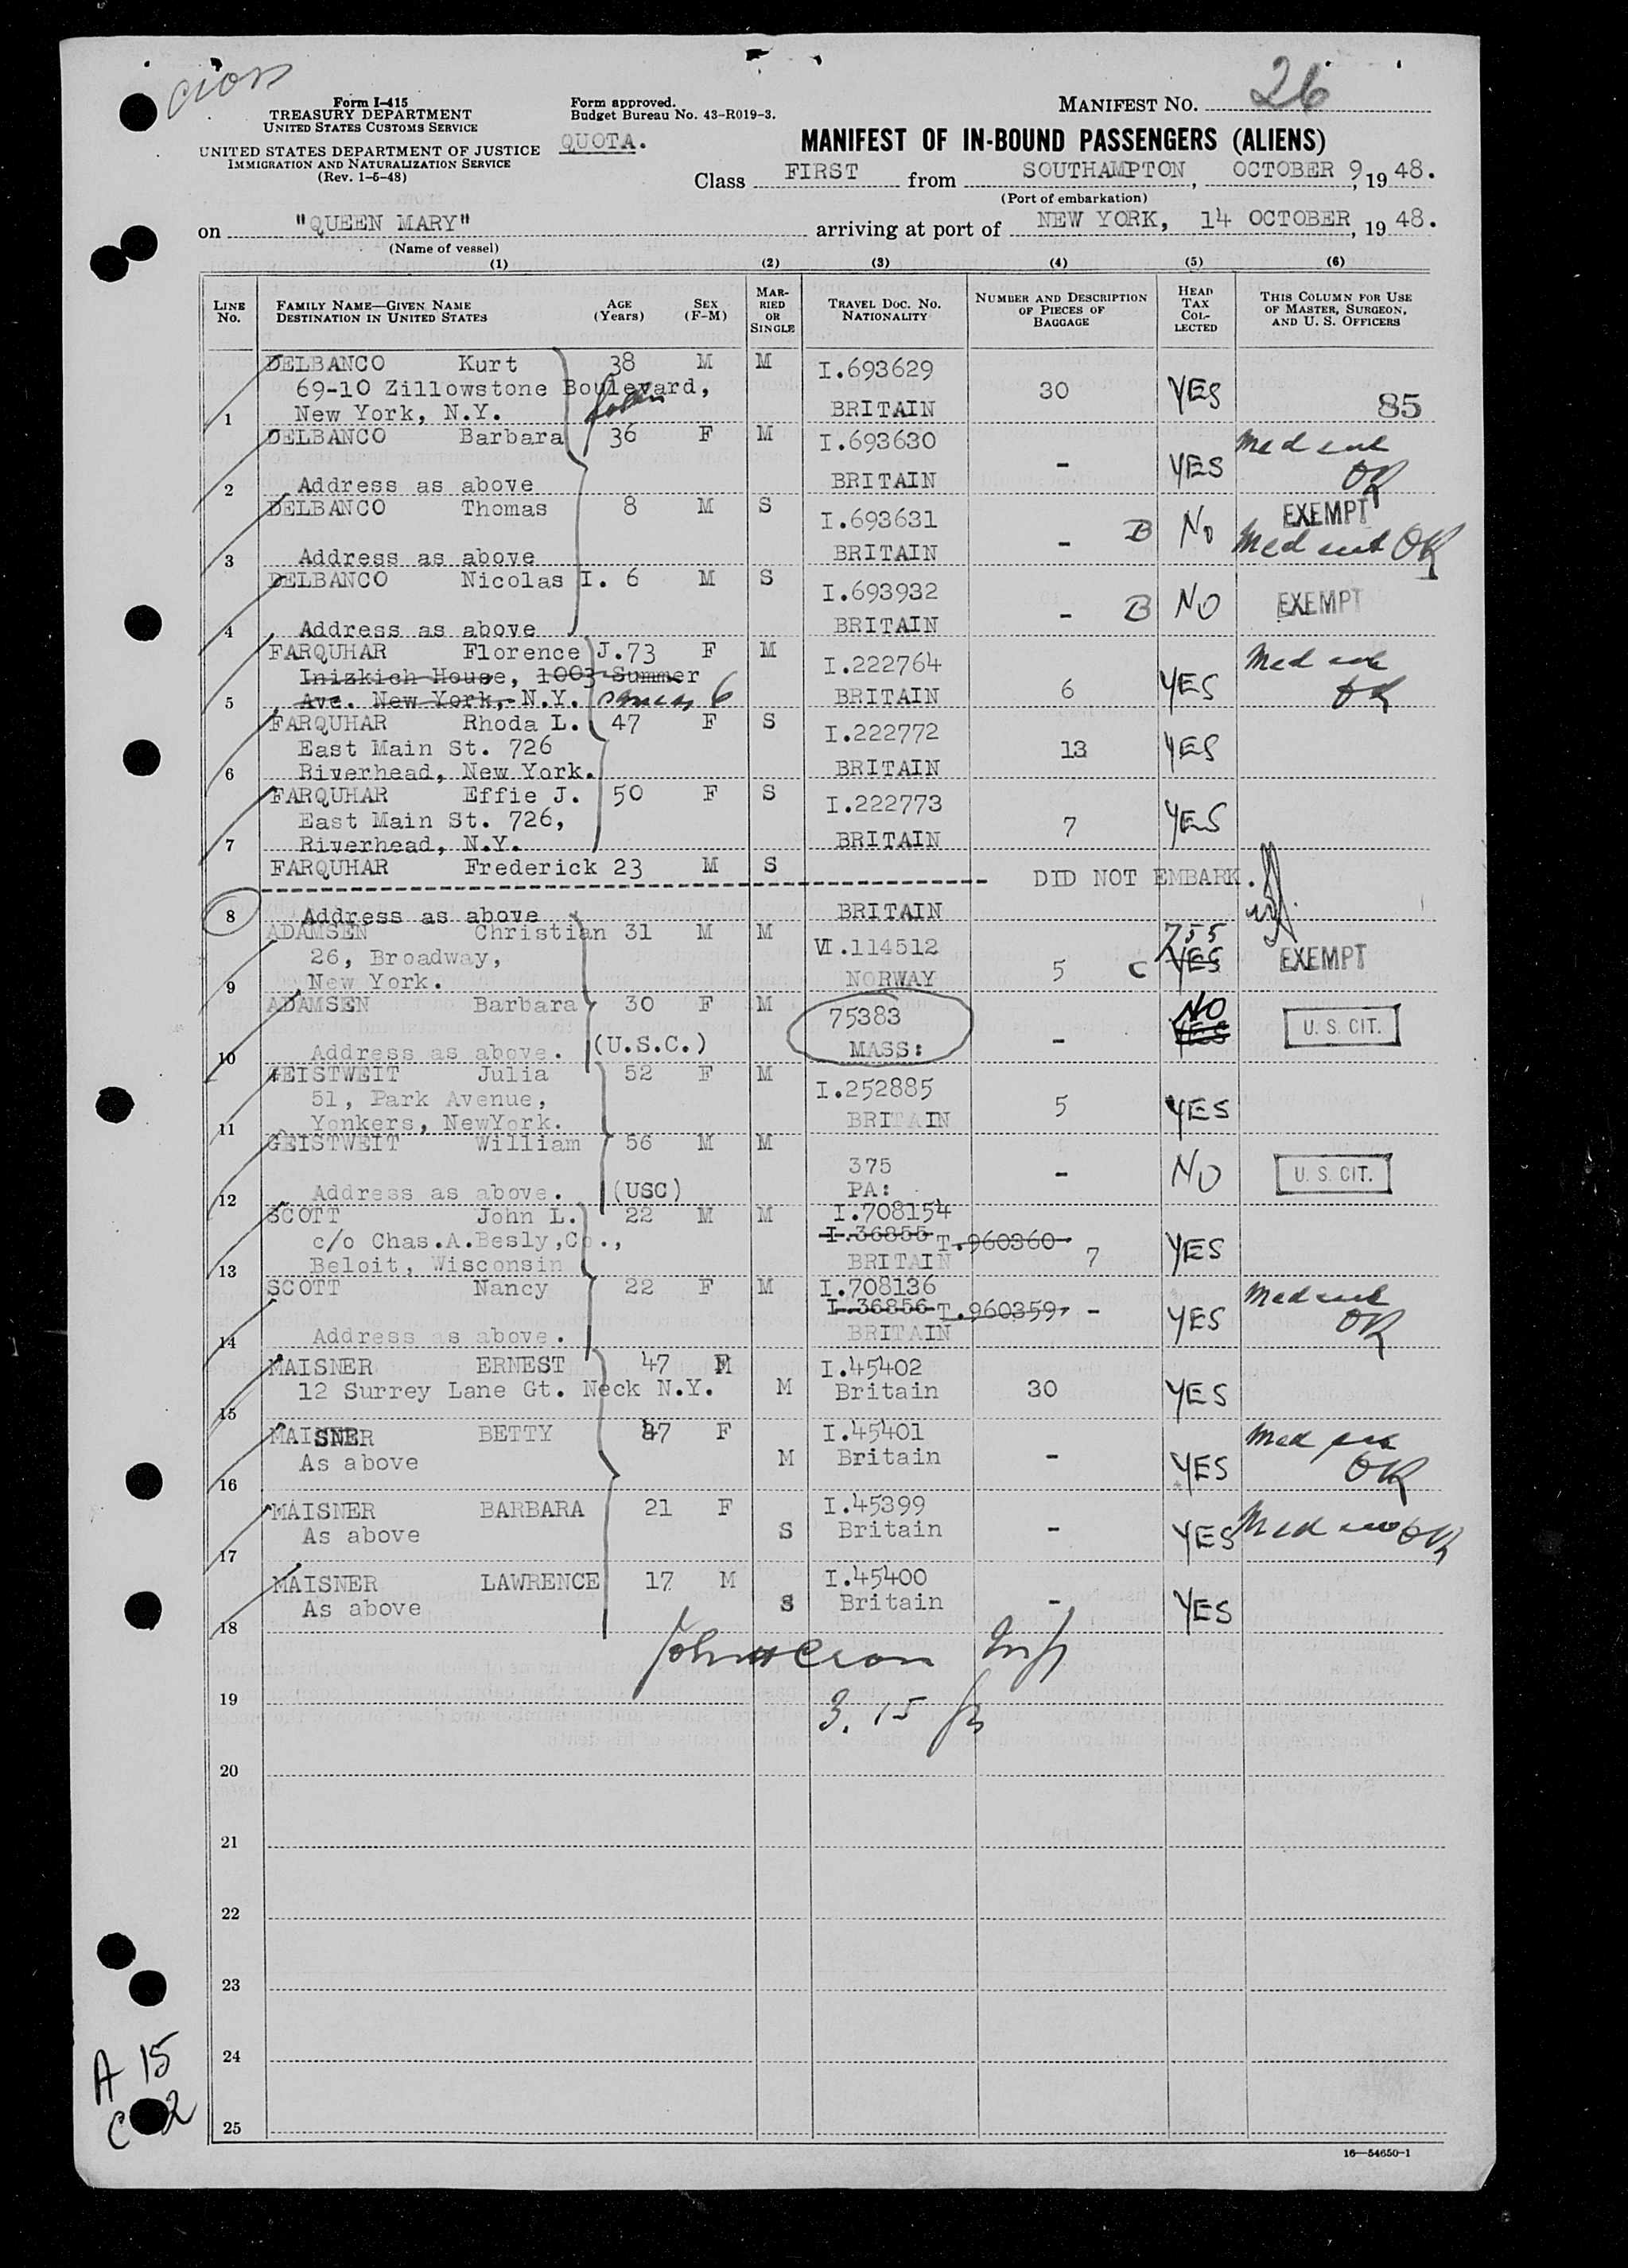 cron
Form I-415
TREASURY DEPARTMENT
UNITED STATES CUSTOMS SERVICE
UNITED STATES DEPARTMENT OF JUSTICE
IMMIGRATION AND NATURALIZATION SERVICE
(Rev. 1-5-48)
Form approved.
Budget Bureau No. 43-R019-3.
QUOTA.
MANIFEST NO. 26
MANIFEST OF IN-BOUND PASSENGERS (ALIENS)
Class FIRST from SOUTHAMPTON, OCTOBER 9, 1948.
(Port of embarkation)
on "QUEEN MARY" arriving at port of NEW YORK, 14 OCTOBER, 1948.
(Name of vessel)
(1) (2) (3) (4) (5) (6)
LINE NO. FAMILY NAME—GIVEN NAME DESTINATION IN UNITED STATES AGE (Years) SEX (F-M) MARRIED OR SINGLE TRAVEL DOC. NO. NATIONALITY NUMBER AND DESCRIPTION OF PIECES OF BAGGAGE HEAD TAX COLLECTED THIS COLUMN FOR USE OF MASTER, SURGEON, AND U. S. OFFICERS
DELBANCO Kurt 38 M M I.693629
69-10 Zillowstone Boulevard, 30 YES
1 New York, N.Y. BRITAIN 85
DELBANCO Barbara 36 F M I.693630 Med
2 Address as above BRITAIN - YES OK
DELBANCO Thomas 8 M S I.693631 EXEMPT
3 Address as above BRITAIN - B No Med OK
DELBANCO Nicolas I. 6 M S I.693932
4 Address as above BRITAIN - B NO EXEMPT
FARQUHAR Florence J. 73 F M I.222764 Med
Inizkich House, 1003 Summer
5 Ave. New York, N.Y. 6 BRITAIN 6 YES OK
FARQUHAR Rhoda L. 47 F S I.222772
East Main St. 726 13 YES
6 Riverhead, New York. BRITAIN
FARQUHAR Effie J. 50 F S I.222773
East Main St. 726, 7 YES
7 Riverhead, N.Y. BRITAIN
FARQUHAR Frederick 23 M S DID NOT EMBARK.
8 Address as above BRITAIN
ADAMSEN Christian 31 M M VI.114512 755
26, Broadway, 5 C YES EXEMPT
9 New York. NORWAY
ADAMSEN Barbara 30 F M 75383 NO
10 Address as above. (U.S.C.) MASS: - YES U. S. CIT.
GEISTWEIT Julia 52 F M I.252885
51, Park Avenue, 5 YES
11 Yonkers, NewYork. BRITAIN
GEISTWEIT William 56 M M 375
12 Address as above. (USC) PA: - NO U. S. CIT.
SCOTT John L. 22 M M I.708154
c/o Chas.A.Besly,Co., I.36855 T.960360
13 Beloit, Wisconsin BRITAIN 7 YES
SCOTT Nancy 22 F M I.708136 Med
I.36856 T.960359 -
14 Address as above. BRITAIN YES OK
MAISNER ERNEST 47 M I.45402
15 12 Surrey Lane Gt. Neck N.Y. M Britain 30 YES
MAISNER BETTY 47 F I.45401 Med
16 As above M Britain - YES OK
MAISNER BARBARA 21 F I.45399
17 As above S Britain - YES Med OK
MAISNER LAWRENCE 17 M I.45400
18 As above S Britain - YES
John H Cron
19
3.15
20
21
22
23
24
A 15
C 2
25
16—54650-1